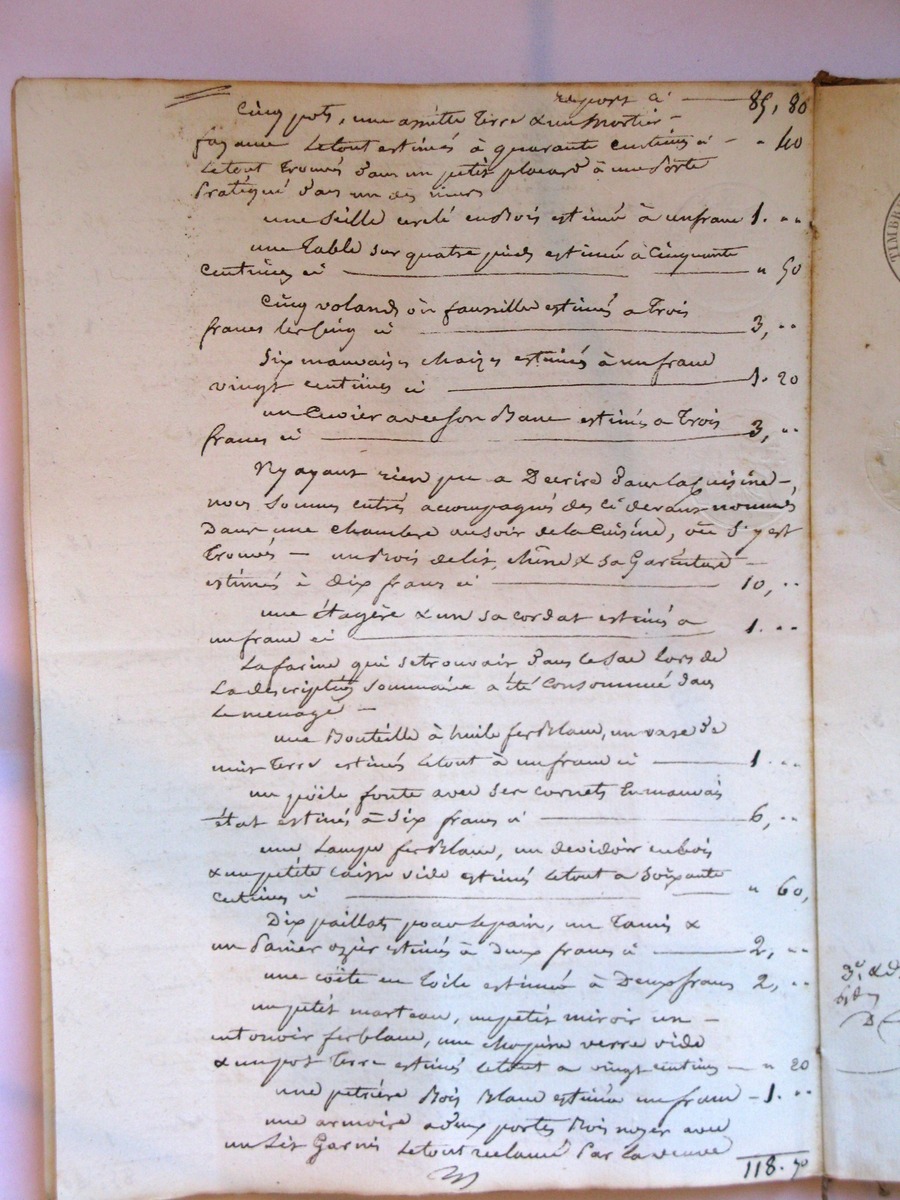 report ci — 89, 80
Cinq pots, une assiette terre & un mortier —
fayance le tout estimés à quarante centimes ci — " 40
le tout trouvés dans un petit placard à une porte
pratiqué dans un des murs
une seille cerclé en bois estimée à un franc 1. "
une table sur quatre pieds estimée à cinquante
centimes ci — " 50
Cinq volands ou faussille estimés a trois
francs les cinq ci — 3, "
Six mauvaises chaizes estimés à un franc
vingt centimes ci — 1. 20
un cuvier avec son banc estimés a trois
francs ci — 3, "
N'y ayant rien plus a Décrire dans la cuisine —,
nous sommes entrés accompagnés des ci devant nommés
Dans une chambre au soir de la cuisine, où s'y est
trouvés — un bois de lit, chêne & sa Garniture —
estimés à dix francs ci — 10, "
une étagère & un sa cordat estimés a
un franc ci — 1. "
La farine qui se trouvait dans le sac lors de
la description sommaire a été consommée dans
le menage —
une Bouteille à huile fer blanc, un vase de
terre estimés le tout à un franc ci — 1. "
un poile fonte avec ses cornets en mauvais
état estimés à six francs ci — 6, "
une lampe fer Blanc, un devidoir en bois
& une petite caisse vide estimés le tout a soixante
centimes ci — " 60,
Dix paillats pour le pain, un tamis &
un panier ozier estimés à deux francs ci — 2, "
une coëte en toile estimée à Deux francs 2, "
un petit marteau, un petit miroir un —
entonoir fer blanc, une chopine verre vide
& un pot terre estimés le tout a vingt centimes — " 20
une petrière Bois Blanc estimée un franc — 1. "
une armoire a deux portes Bois noyer avec
un lit Garnis le tout reclamé par la veuve
118. 70
TIMBR
3e. &